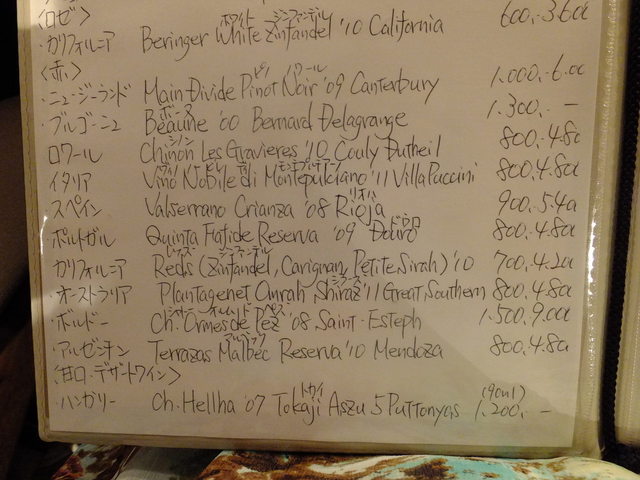 〈ロゼ〉
ホワイト ジンファンデル
・カリフォルニア Beringer White Zinfandel '10 California 600.-3.600
〈赤〉
ピノ ノワール
・ニュージーランド Main Divide Pinot Noir '09 Canterbury 1,000.-6.000
ボーヌ
・ブルゴーニュ Beaune '00 Bernard Delagrange 1.300.-
シノン
・ロワール Chinon Les Gravieres '10 Couly Dutheil 800.4.800
・イタリア Vino Nobile di Montepulciano '11 Villa Puccini 800.4.800
リオハ
・スペイン Valserrano Crianza '08 Rioja 900.-5.400
ドウロ
・ポルトガル Quinta Reserva '09 Douro 800.4.800
レッズ ジンファンデル
・カリフォルニア Reds (Zinfandel, Carignan, Petite Sirah) '10 700.4.200
シラーズ
・オーストラリア Plantagenet Omrah Shiraz '11 Great Southern 800.4.800
・ボルドー Ch. Ormes de Pez '08 Saint-Esteph 1.500.9.000
マルベック
・アルゼンチン Terrazas Malbec Reserva '10 Mendoza 800.4.800
〈甘口・デザートワイン〉
トカイ (90ml)
・ハンガリー Ch. Hellha '07 Tokaji Aszu 5 Puttonyos 1.200.-